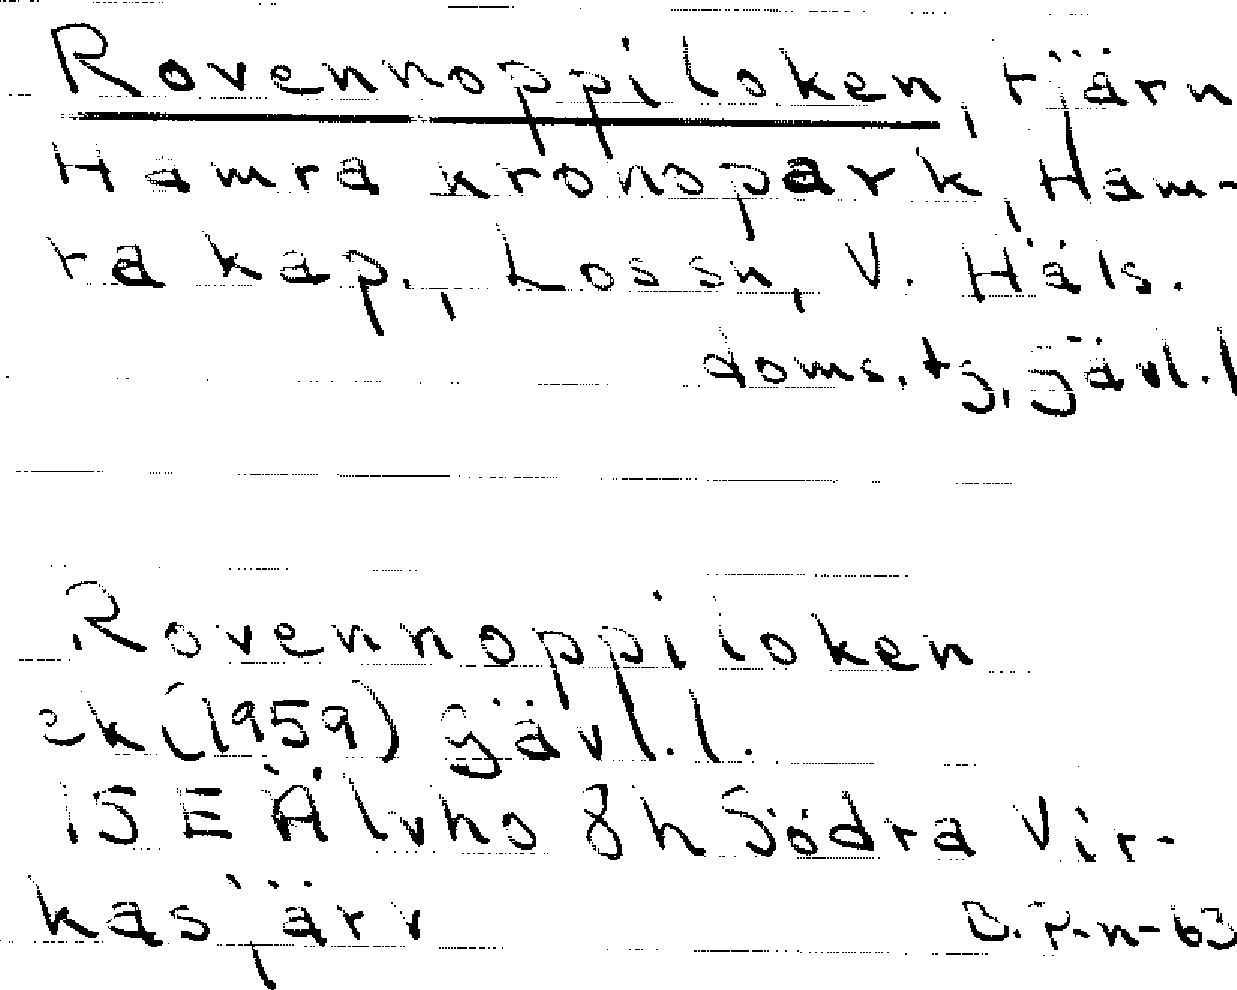 Rovennoppiloken, tjärn
Hamra kronopark, Ham-
ra kap., Lossn, V. Häls.
doms. tj, gävl. l
Rovennoppiloken
ek (1959) gävl. l.
15E Älvho 8h Södra Vir-
kasjärv
-n-63